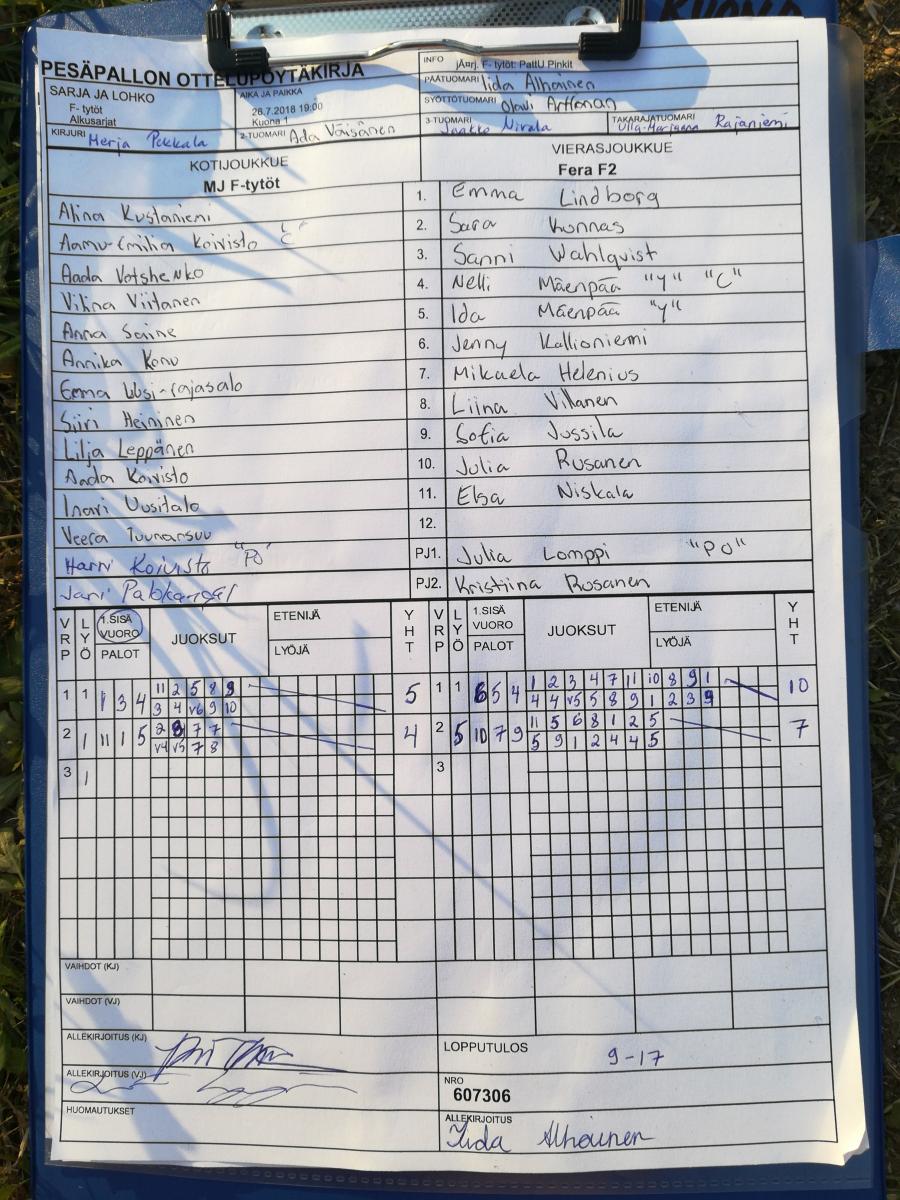 KUONA
PESÄPALLON OTTELUPÖYTÄKIRJA
INFO jÄrj. F- tytöt: PattU Pinkit
PÄÄTUOMARI Iida Alhainen
SARJA JA LOHKO
F- tytöt
Alkusarjat
AIKA JA PAIKKA
26.7.2018 19:00
Kuona 1
SYÖTTÖTUOMARI Olavi
KIRJURI Merja Pekkala
2-TUOMARI Ada Väisänen
3-TUOMARI Jarkko Nivala
TAKARAJATUOMARI Ulla-Marjaana Rajaniemi
KOTIJOUKKUE
MJ F-tytöt
VIERASJOUKKUE
Fera F2
Alina Kustaniemi 1. Emma Lindborg
Aamu-Emilia Koivisto "C" 2. Sara Kunnas
Aada Votshenko 3. Sanni Wahlquist
Vilina Viitanen 4. Nelli Mäenpää "Y" "C"
Anna Saine 5. Ida Mäenpää "Y"
Annika Kono 6. Jenny Kallioniemi
Eemma Uusi-rajasalo 7. Mikaela Helenius
Siiri Heininen 8. Liina Villanen
Lilja Leppänen 9. Sofia Jussila
Aada Koivisto 10. Julia Rusanen
Inari Uusitalo 11. Elsa Niskala
Veera Tuunarsuu 12.
Harri Koivisto "PO" PJ1. Julia Lomppi "PO"
Jari PJ2. Kristiina Rusanen
VRP LYÖ 1.SISÄ VUORO PALOT JUOKSUT ETENIJÄ LYÖJÄ YHT VRP LYÖ 1.SISÄ VUORO PALOT JUOKSUT ETENIJÄ LYÖJÄ YHT
1 1 1 3 4 11 2 5 8 9 5 1 1 6 5 4 1 2 3 4 7 11 10 8 9 1 10
3 4 v6 9 10 4 4 v5 5 8 9 1 2 3 9
2 1 11 1 5 2 3 7 7 4 2 5 10 7 9 11 5 6 8 1 2 5 7
v4 v5 7 8 5 9 1 2 4 4 5
3 1 3
VAIHDOT (KJ)
VAIHDOT (VJ)
ALLEKIRJOITUS (KJ)
LOPPUTULOS 9-17
ALLEKIRJOITUS (VJ)
NRO
607306
HUOMAUTUKSET
ALLEKIRJOITUS
Iida Alhainen